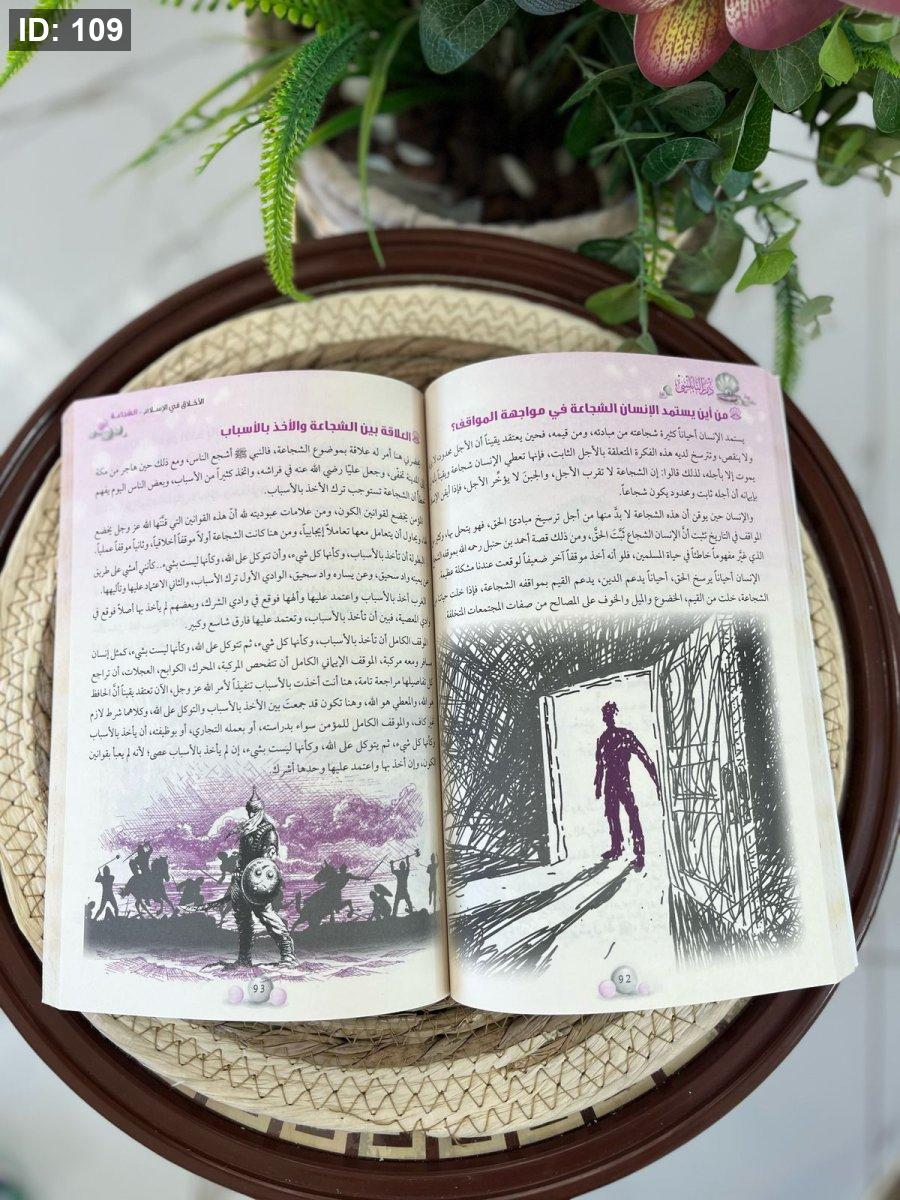 ID: 109
درر النابلسي
من أين يستمد الإنسان الشجاعة في مواجهة المواقف؟
يستمد الإنسان أحياناً كثيرة شجاعته من مبادئه، ومن قيمه، فحين يعتقد يقيناً أن الأجل محدود لا
ولا ينقص، وتترسخ لديه هذه الفكرة المتعلقة بالأجل الثابت، فإنها تعطي الإنسان شجاعة
يموت إلا بأجله، لذلك قالوا: إن الشجاعة لا تقرب الأجل، والجبن لا يؤخر الأجل، فإذا أيقن
بإيمانه أن أجله ثابت ومحدود يكون شجاعاً.
والإنسان حين يوقن أن هذه الشجاعة لا بدَّ منها من أجل ترسيخ مبادئ الحق، فهو يتحل بها،
المواقف في التاريخ تثبت أنَّ الإنسان الشجاع ثَبَّتَ الحقَّ، ومن ذلك قصة أحمد بن حنبل رحمه الله بموقفه
الذي غيَّر مفهوماً خاطئاً في حياة المسلمين، فلو أنه أخذ موقفاً آخر ضعيفاً لوقعت عندنا مشكلة عظيمة
الإنسان أحياناً يرسخ الحق، أحياناً يدعم الدين، يدعم القيم بمواقفه الشجاعة، فإذا خلت
الشجاعة، خلت من القيم، الخضوع والميل والخوف على المصالح من صفات المجتمعات المتخلفة
92
الأخلاق في الإسلام - الشجاعة
العلاقة بين الشجاعة والأخذ بالأسباب
يحضرني هنا أمر له علاقة بموضوع الشجاعة، فالنبي ﷺ أشجع الناس، ومع ذلك حين هاجر من مكة
المدينة تخفّى، وجعل عليّاً رضي الله عنه في فراشه، واتخذ كثيراً من الأسباب، وبعض الناس اليوم يفهم
خطأً أن الشجاعة تستوجب ترك الأخذ بالأسباب.
المؤمن يخضع لقوانين الكون، ومن علامات عبوديته لله أنَّ هذه القوانين التي قنَّنها الله عز وجل يخضع
ويحاول أن يتعامل معها تعاملاً إيجابياً، ومن هنا كانت الشجاعة أولاً موقفاً أخلاقياً، وثانياً موقفاً عملياً.
البطولة أن تأخذ بالأسباب، وكأنها كل شيء، وأن تتوكل على الله، وكأنها ليست بشيء.. كأنني أمشي على طريق
عن يمينه واد سحيق، وعن يساره واد سحيق، الوادي الأول ترك الأسباب، والثاني الاعتماد عليها وتأليهها.
الغرب أخذ بالأسباب واعتمد عليها وألهها فوقع في وادي الشرك، وبعضهم لم يأخذ بها أصلاً فوقع في
وادي المعصية، فبين أن تأخذ بالأسباب، وتعتمد عليها فارق شاسع وكبير.
الموقف الكامل أن تأخذ بالأسباب، وكأنها كل شيء، ثم تتوكل على الله، وكأنها ليست بشيء، كمثل إنسان
مسافر ومعه مركبة، الموقف الإيماني الكامل أن تتفحص المركبة، المحرك، الكوابح، العجلات، أن تراجع
كل تفاصيلها مراجعة تامة، هنا أنت أخذت بالأسباب تنفيذاً لأمر الله عز وجل، الآن تعتقد يقيناً أنَّ الحافظ
هو الله، والمعطي هو الله، وهنا تكون قد جمعتَ بين الأخذ بالأسباب والتوكل على الله، وكلاهما شرط لازم
غير كاف، والموقف الكامل للمؤمن سواء بدراسته، أو بعمله التجاري، أو بوظيفته، أن يأخذ بالأسباب
وكأنها كل شيء، ثم يتوكل على الله، وكأنها ليست بشيء، إن لم يأخذ بالأسباب عصى؛ لأنه لم يعبأ بقوانين
الكون، وإن أخذ بها واعتمد عليها وحدها أشرك.
93